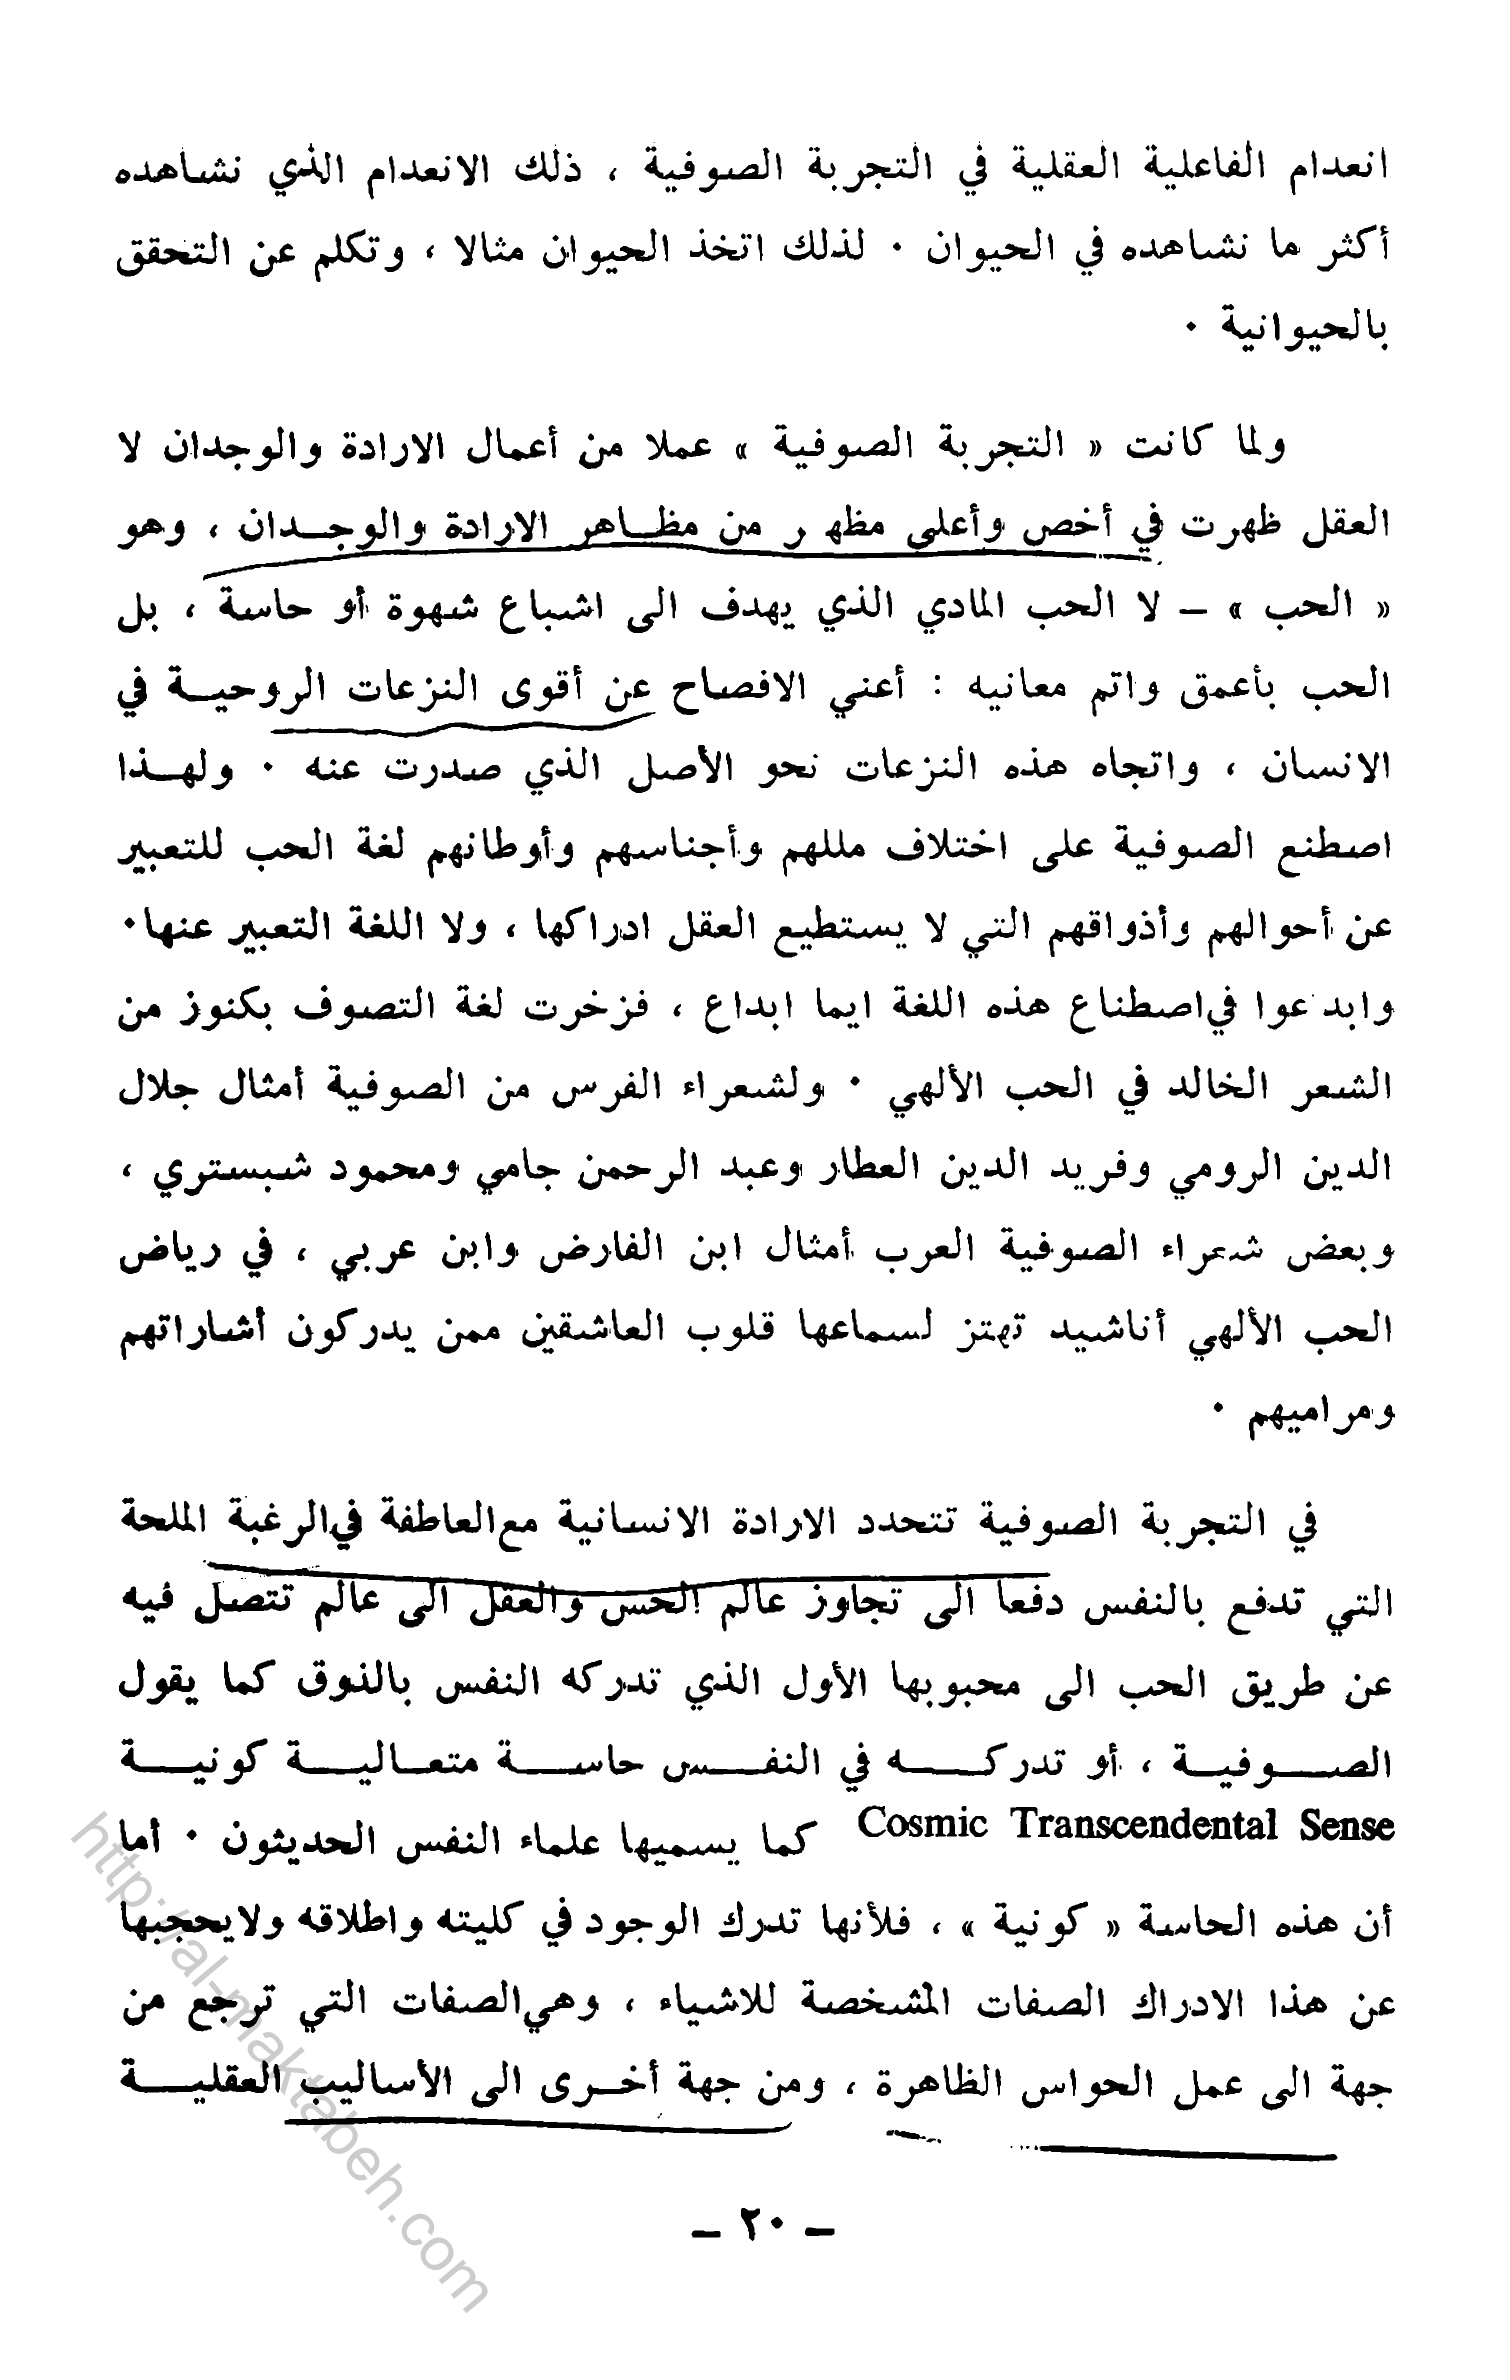 انعدام الفاعلية العقلية في التجربة الصوفية ، ذلك الانعدام الذي نشاهده
أكثر ما نشاهده في الحيوان ٠ لذلك اتخذ الحيوان مثالا ، وتكلم عن التحقق
بالحيوانية ٠
ولما كانت « التجربة الصوفية » عملا من أعمال الارادة والوجدان لا
العقل ظهرت في أخص وأعلى مظهر من مظاهر الارادة والوجدان ، وهو
« الحب » — لا الحب المادي الذي يهدف الى اشباع شهوة أو حاسة ، بل
الحب بأعمق واتم معانيه : أعني الافصاح عن أقوى النزعات الروحية في
الانسان ، واتجاه هذه النزعات نحو الأصل الذي صدرت عنه ٠ ولهذا
اصطنع الصوفية على اختلاف مللهم وأجناسهم وأوطانهم لغة الحب للتعبير
عن أحوالهم وأذواقهم التي لا يستطيع العقل ادراكها ، ولا اللغة التعبير عنها٠
وابدعوا في اصطناع هذه اللغة ايما ابداع ، فزخرت لغة التصوف بكنوز من
الشعر الخالد في الحب الألهي ٠ ولشعراء الفرس من الصوفية أمثال جلال
الدين الرومي وفريد الدين العطار وعبد الرحمن جامي ومحمود شبستري ،
وبعض شعراء الصوفية العرب أمثال ابن الفارض وابن عربي ، في رياض
الحب الألهي أناشيد تهتز لسماعها قلوب العاشقين ممن يدركون أشاراتهم
ومراميهم ٠
في التجربة الصوفية تتحدد الارادة الانسانية مع العاطفة في الرغبة الملحة
التي تدفع بالنفس دفعا الى تجاوز عالم الحس والعقل الى عالم تتصل فيه
عن طريق الحب الى محبوبها الأول الذي تدركه النفس بالذوق كما يقول
الصوفية ، أو تدركه في النفس حاسة متعالية كونية
Cosmic Transcendental Sense كما يسميها علماء النفس الحديثون ٠ أما
أن هذه الحاسة « كونية » ، فلأنها تدرك الوجود في كليته واطلاقه ولايحجبها
عن هذا الادراك الصفات المشخصة للاشياء ، وهي الصفات التي ترجع من
جهة الى عمل الحواس الظاهرة ، ومن جهة أخرى الى الأساليب العقلية
— ٢٠ —
http://al-maktabeh.com